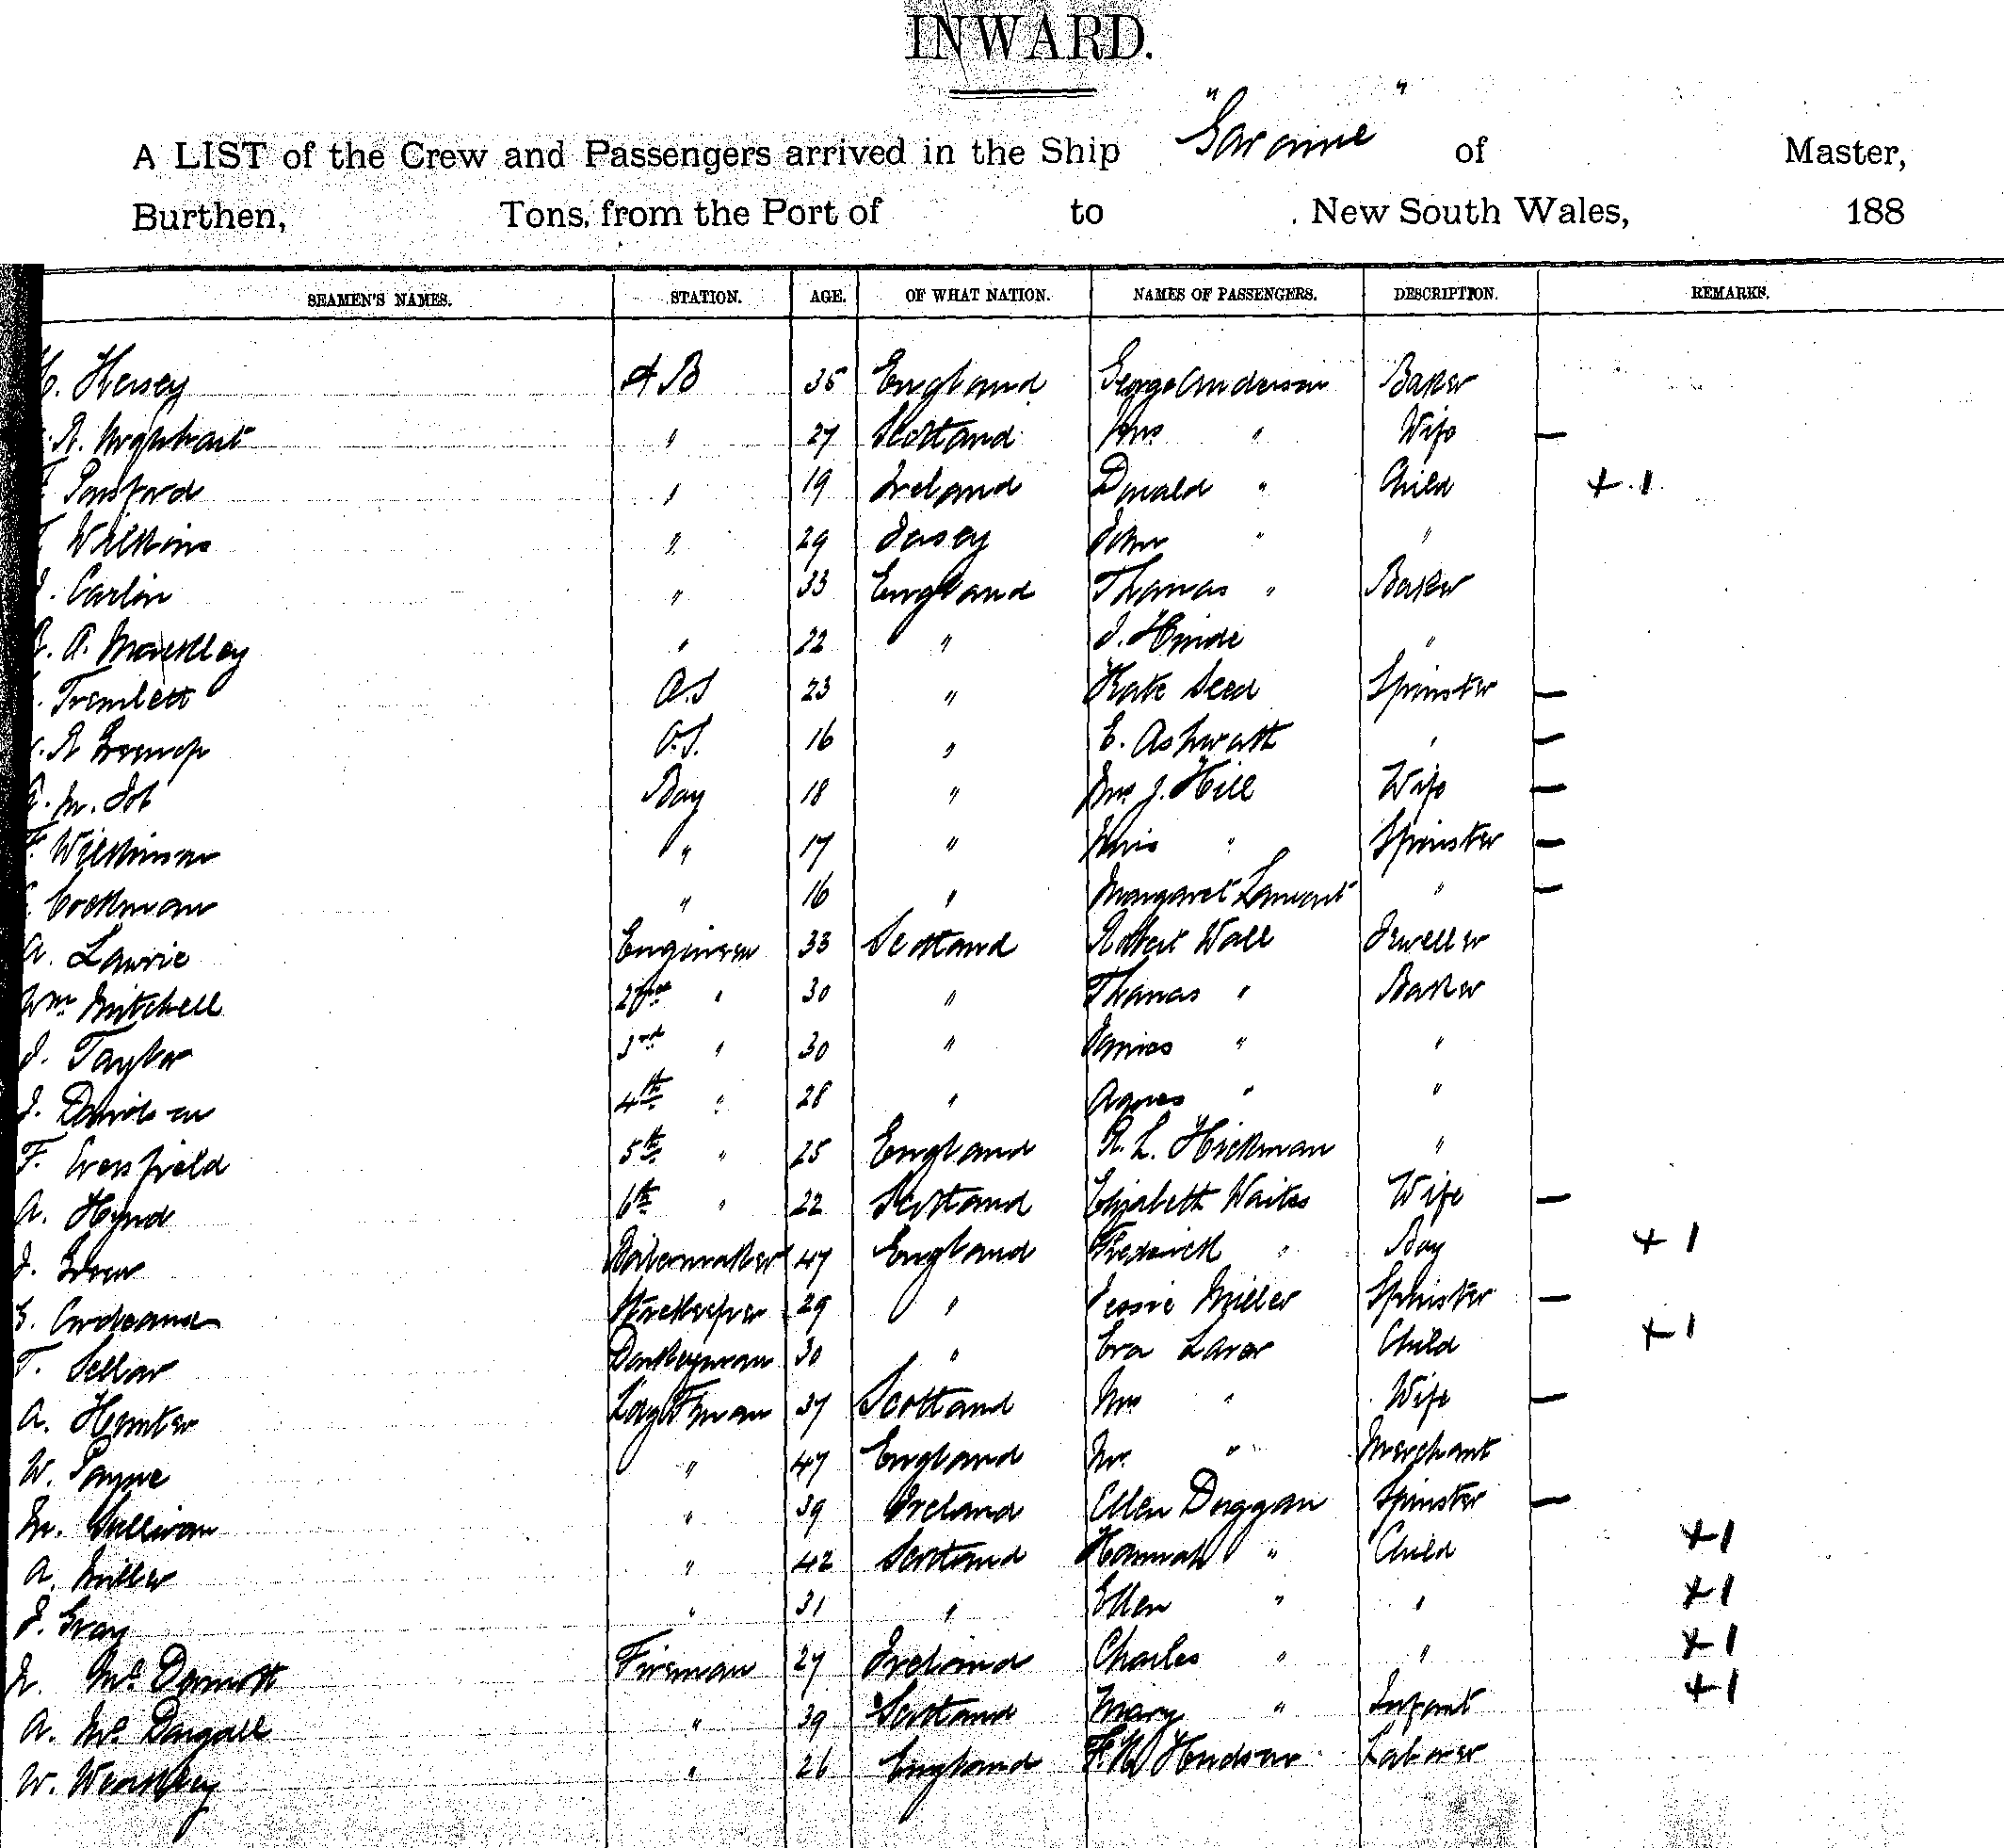 INWARD.
A LIST of the Crew and Passengers arrived in the Ship "Garonne" of Master,
Burthen, Tons, from the Port of to New South Wales, 188
SEAMEN'S NAMES. STATION. AGE. OF WHAT NATION. NAMES OF PASSENGERS. DESCRIPTION. REMARKS.
H. Hersey A B 35 England George Anderson Baker
R. Urquhart " 27 Scotland Mrs " Wife —
Ponsford " 19 Ireland Donald " Child + 1
Wilkins " 29 Jersey John " "
J. Carlin " 33 England Thomas " Baker
A. " 22 " J. Hinde "
Tremlett A.S 23 " Kate Seed Spinster —
R O.S. 16 " E. Ashworth " —
M. Job Boy 18 " Mrs J. Hill Wife —
F. Wilkinson " 17 " Miss " Spinster —
Cockman " 16 " Margaret Lamont " —
A. Lawrie Engineer 33 Scotland Robert Wall Jeweller
Wm Mitchell 2nd " 30 " Thomas " Baker
J. Taylor 3rd " 30 " James " "
J. Davidson 4th " 28 " Agnes " "
F. Eversfield 5th " 25 England R. L. Hickman "
A. Hynd 6th " 22 Scotland Elizabeth Waites Wife —
J. Boilermaker 47 England Frederick " Boy + 1
Storekeeper 29 " Jessie Miller Spinster —
T. Sellar Donkeyman 30 " Eva Laver Child + 1
A. Hunter Ldg Fman 37 Scotland Mrs " Wife —
W. Payne " 47 England Mr. " Merchant
M. Sullivan " 39 Ireland Ellen Duggan Spinster —
A. Miller " 42 Scotland Hannah " Child + 1
J. Gray " 31 " Ellen " " + 1
McDermott Fireman 27 Ireland Charles " " + 1
A. McDougall " 39 Scotland Mary " Infant + 1
W. " 26 England F. W Hudson Laborer